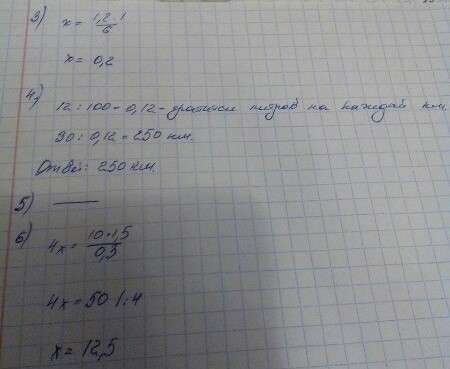 3) x = 1,2·1/6
x = 0,2
4) 12 : 100 = 0,12 - литров на каждый км.
30 : 0,12 = 250 км.
Ответ: 250 км.
5) —
6) 4x = 10·1,5/0,3
4x = 50 | : 4
x = 12,5